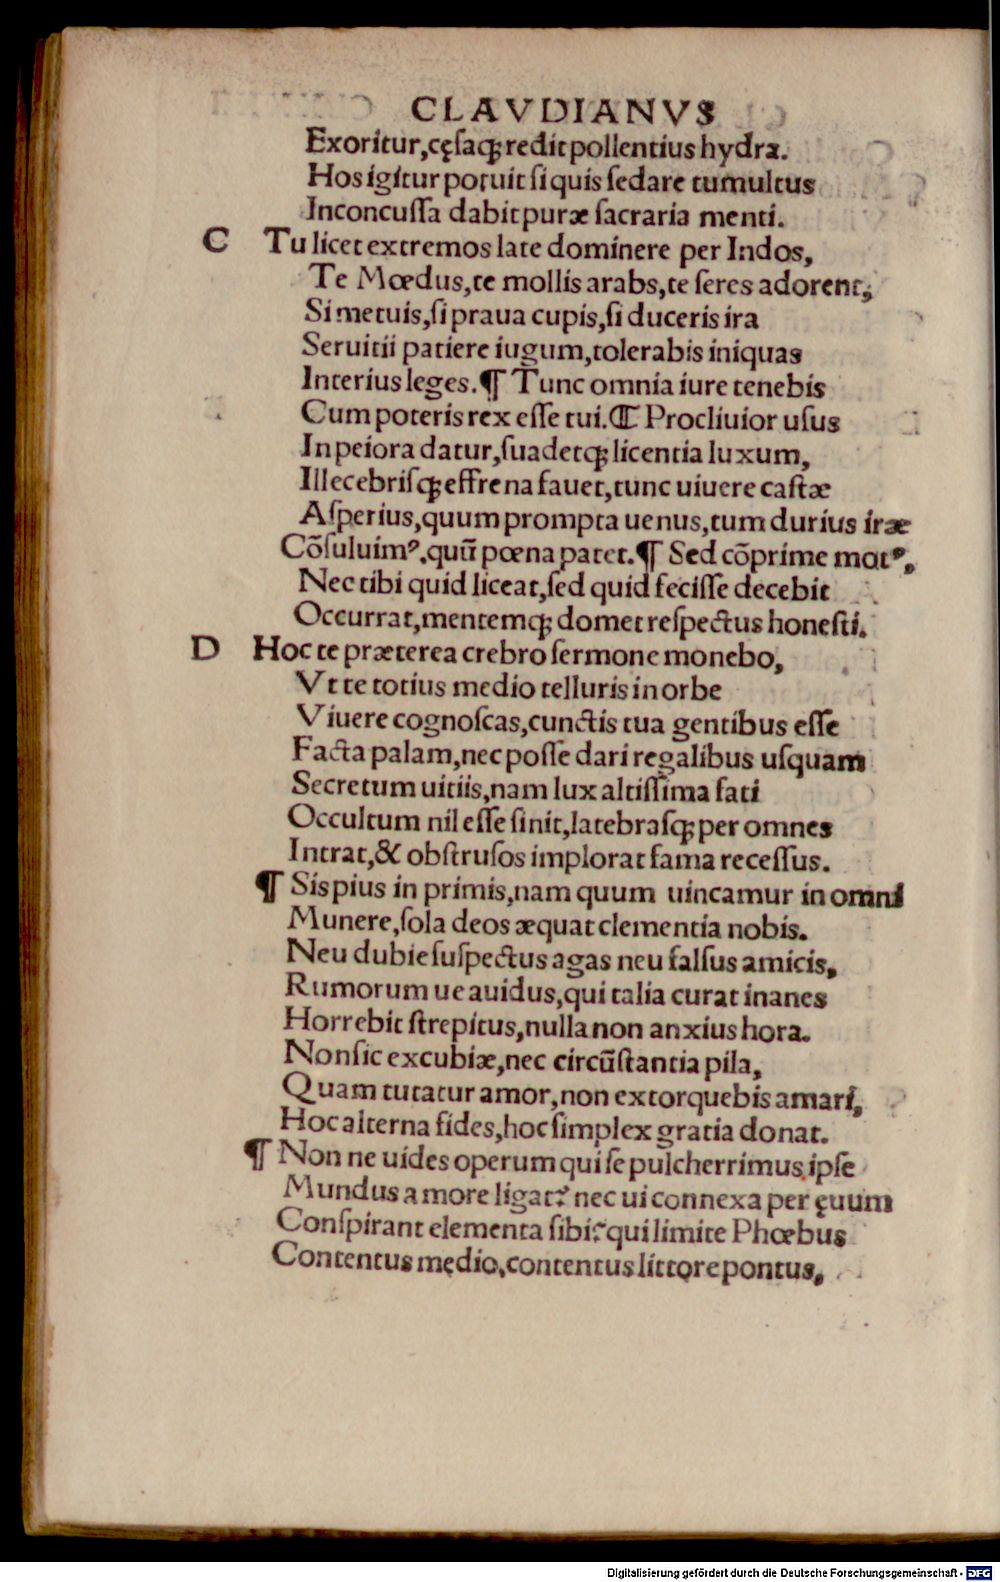 CLAVDIANVS
Exoritur,cęſaqꝫ redit pollentius hydra.
Hos igitur potuit ſi quis ſedare tumultus
Inconcuſſa dabit puræ ſacraria menti.
C Tu licet extremos late dominere per Indos,
Te Mœdus,te mollis arabs,te ſeres adorent,
Si metuis,ſi praua cupis,ſi duceris ira
Seruitii patiere iugum,tolerabis iniquas
Interius leges.¶ Tunc omnia iure tenebis
Cum poteris rex eſſe tui.¶ Procliuior uſus
In peiora datur,ſuadetqꝫ licentia luxum,
Illecebriſqꝫ effrena fauet,tunc uiuere caſtæ
Aſperius,quum prompta uenus,tum durius iræ
Cõſuluimꝰ.quũ pœna patet.¶ Sed cõprime motꝰ,
Nec tibi quid liceat,ſed quid feciſſe decebit
Occurrat,mentemqꝫ domet reſpectus honeſti.
D Hoc te præterea crebro ſermone monebo,
Vt te totius medio telluris in orbe
Viuere cognoſcas,cunctis tua gentibus eſſe
Facta palam,nec poſſe dari regalibus uſquam
Secretum uitiis,nam lux altiſſima fati
Occultum nil eſſe ſinit,latebraſqꝫ per omnes
Intrat,& obſtruſos implorat fama receſſus.
¶ Sis pius in primis,nam quum uincamur in omni
Munere,ſola deos æquat clementia nobis.
Neu dubie ſuſpectus agas neu falſus amicis,
Rumorum ue auidus,qui talia curat inanes
Horrebit ſtrepitus,nulla non anxius hora.
Non ſic excubiæ,nec circũſtantia pila,
Quam tutatur amor,non extorquebis amari,
Hoc alterna fides,hoc ſimplex gratia donat.
¶ Non ne uides operum qui ſe pulcherrimus ipſe
Mundus amore ligat? nec ui connexa per ęuum
Conſpirant elementa ſibi?qui limite Phœbus
Contentus medio,contentus littore pontus,
Digitalisierung gefördert durch die Deutsche Forschungsgemeinschaft - DFG